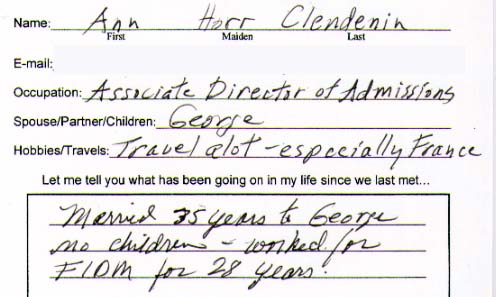 Name: Ann Horr Clendenin
First Maiden Last
E-mail:
Occupation: Associate Director of Admissions
Spouse/Partner/Children: George
Hobbies/Travels: Travel alot - especially France
Let me tell you what has been going on in my life since we last met...
Married 35 years to George
no children - worked for
FIDM for 28 years.